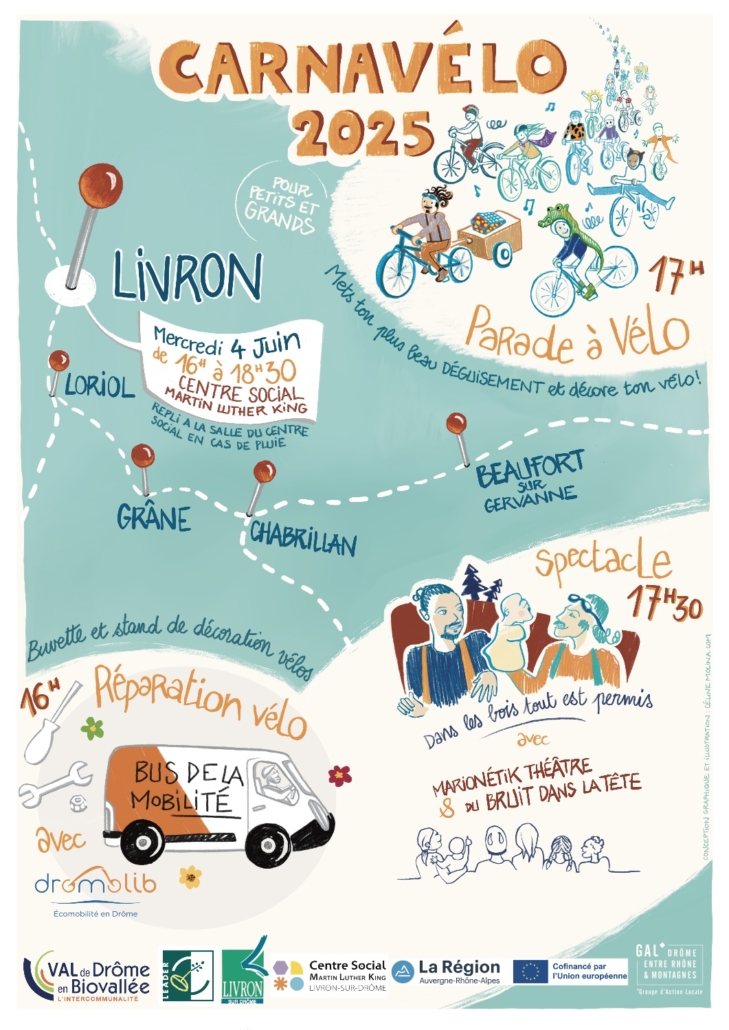 CARNAVÉLO
2025
POUR
PETITS ET
GRANDS
17H
Parade à Vélo
Mets ton plus beau DÉGUISEMENT et décore ton vélo!
LIVRON
Mercredi 4 Juin
de 16H à 18H30
CENTRE SOCIAL
MARTIN LUTHER KING
REPLI A LA SALLE DU CENTRE
SOCIAL EN CAS DE PLUIE
LORIOL
GRÂNE
CHABRILLAN
BEAUFORT
SUR
GERVANNE
Spectacle
17H30
Dans les bois tout est permis
avec
MARIONÉTIK THÉÂTRE
& DU BRUIT DANS LA TÊTE
Buvette et stand de décoration vélos
16H
Réparation vélo
BUS DE LA
MOBILITÉ
avec
dromolib
Écomobilité en Drôme
CONCEPTION GRAPHIQUE ET ILLUSTRATION : CÉLINE MOLINA.COM
VAL de DRÔME
en BIOVALLÉE
L'INTERCOMMUNALITÉ
LEADER
LIVRON
SUR DRÔME
Centre Social
MARTIN LUTHER KING
LIVRON-SUR-DRÔME
La Région
Auvergne-Rhône-Alpes
Cofinancé par
l'Union européenne
GAL* DRÔME
ENTRE RHÔNE
& MONTAGNES
*Groupe d'Action Locale